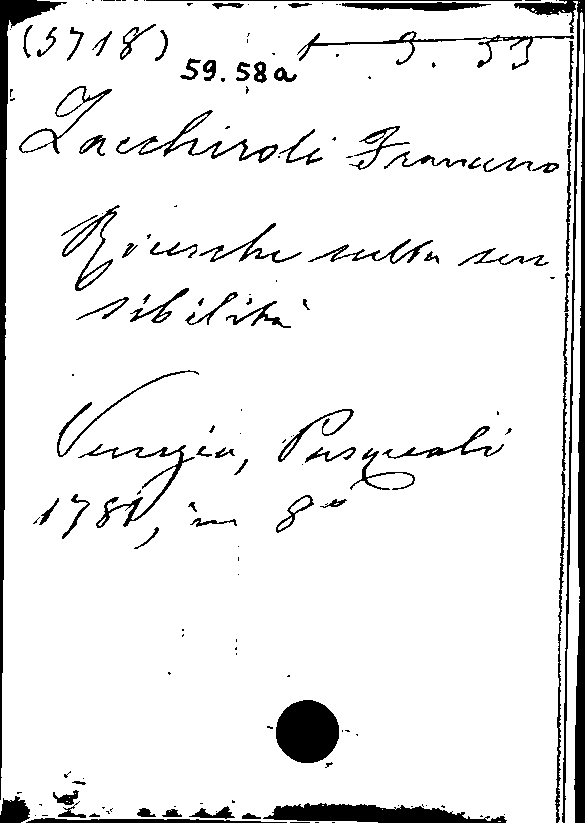 (5718) 1. 9. 53
59.58a
Zacchiroli Francesco
Ricerche sulla sen
sibilità
Venezia, Pasquali
1781, in 8°